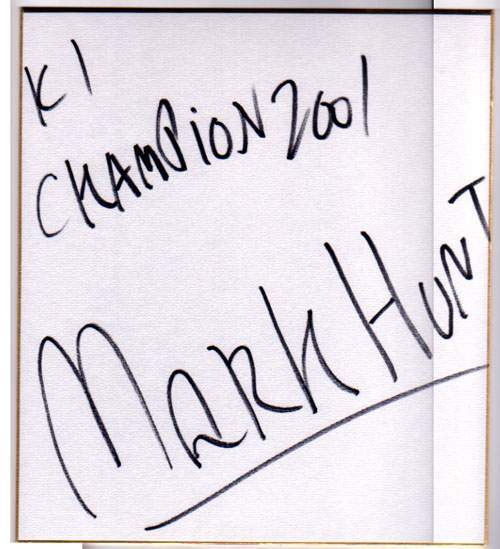 K1
CHAMPiON 2001
MARK HUNT